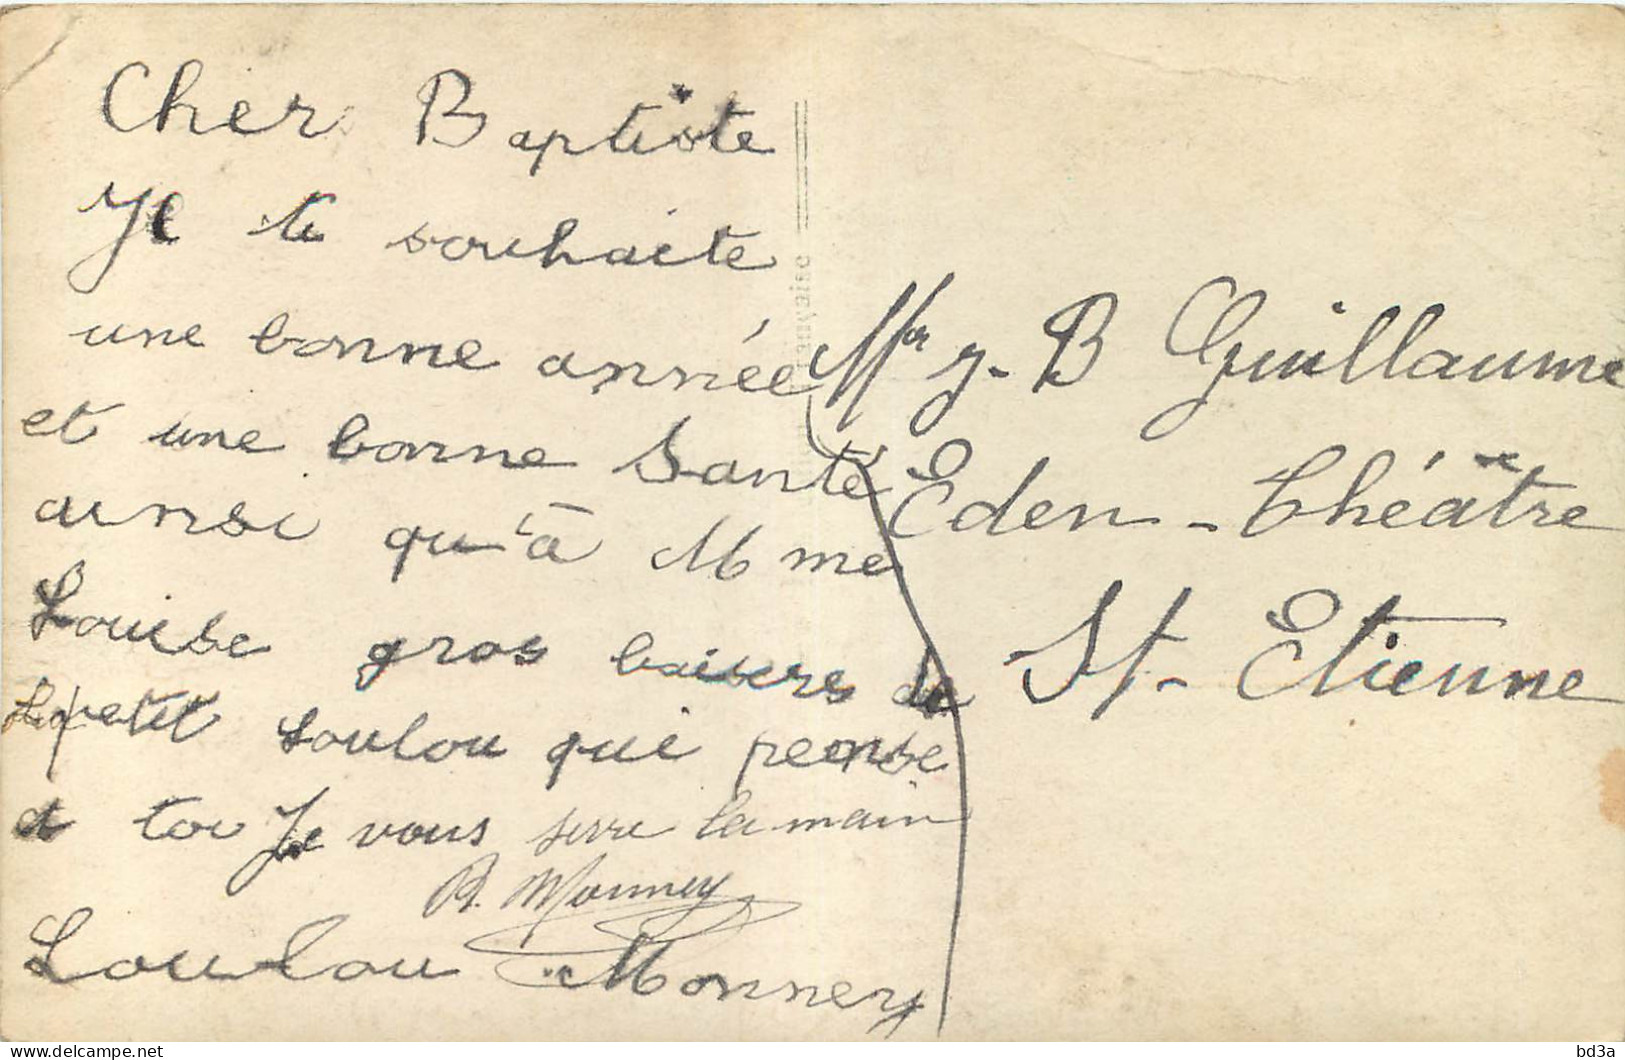 Cher Baptiste
Je te souhaite
une bonne année
et une bonne Santé
ainsi qu'à Mme
Louise gros baisers de
petit Loulou qui pense
a toi Je vous serre la main
B. Monney
Loulou Monney
Mr J. B Guillaume
Eden-théâtre
St-Etienne
bd3a